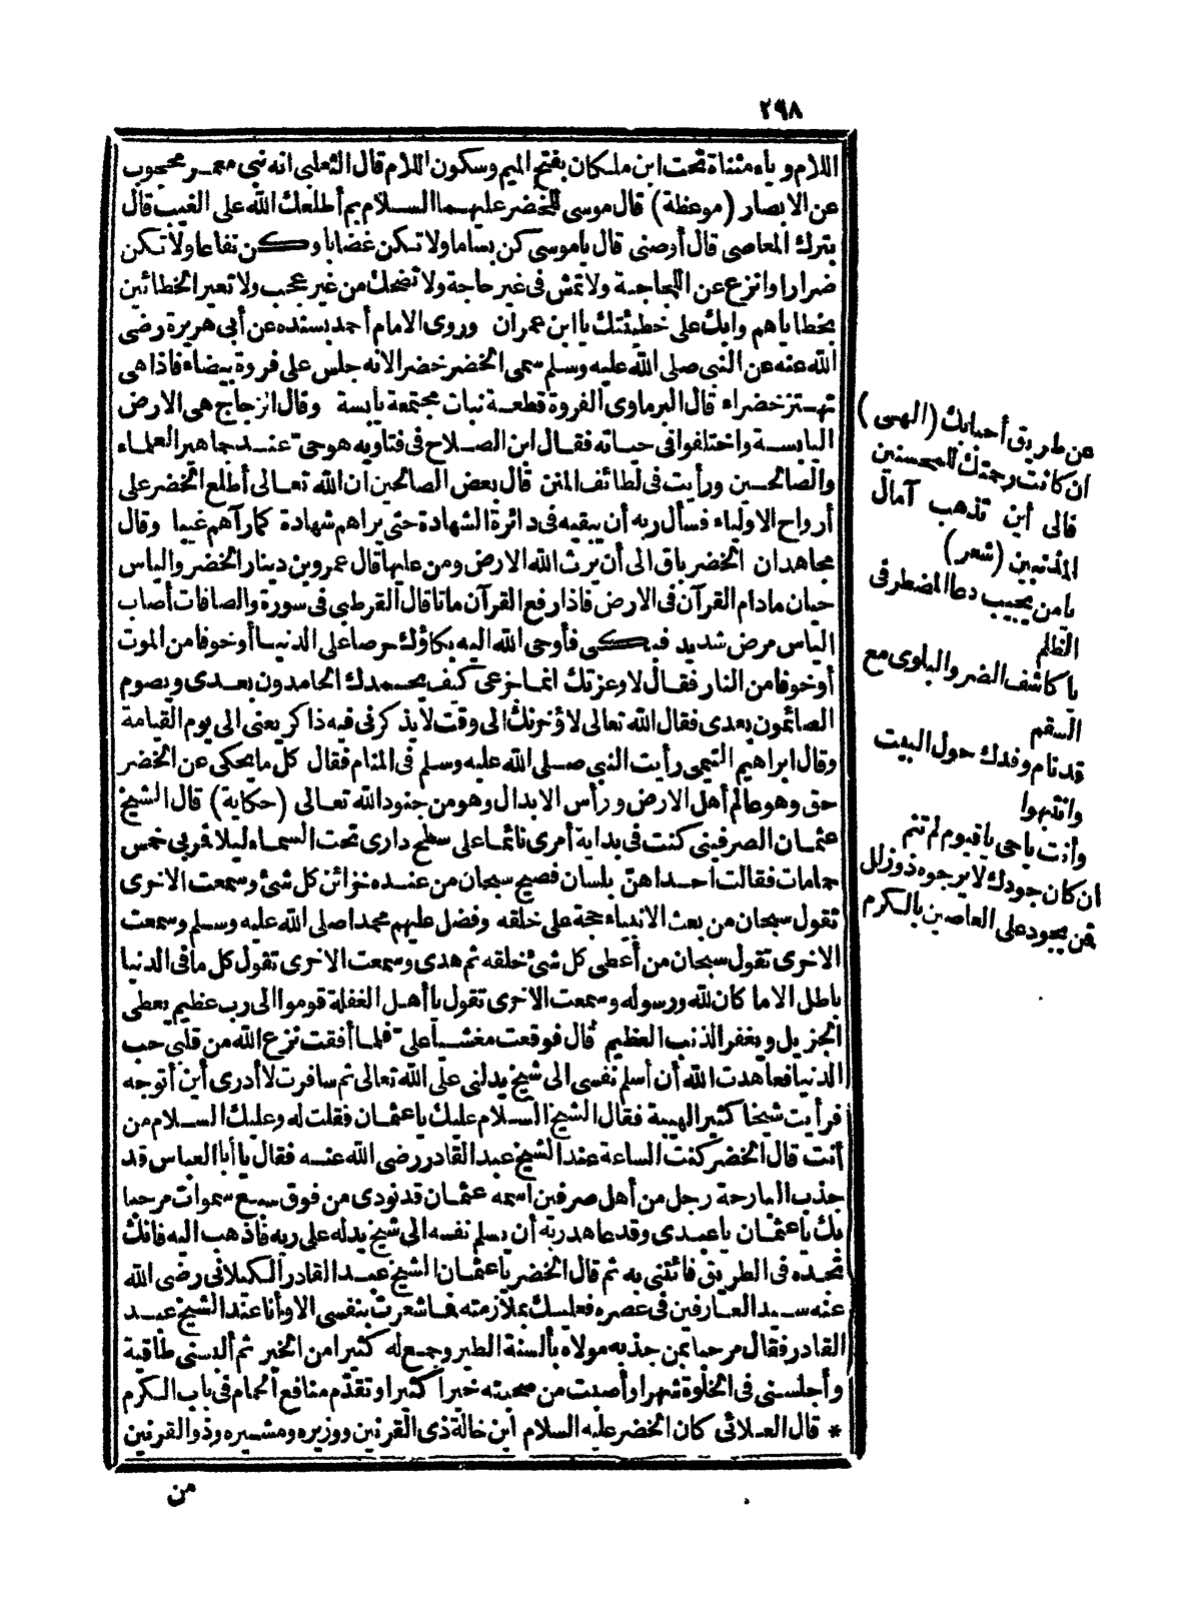 ٢٩٨
اللام وياء مثناة تحت ابن ملكان بفتح الميم وسكون اللام قال الثعلبي انه نبي معمر محجوب
عن الابصار (موعظة) قال موسى للخضر عليهما السلام بم أطلعك الله على الغيب قال
بترك المعاصى قال أوصنى قال ياموسى كن بساما ولا تكن غضابا وكن نفاعا ولا تكن
ضرارا وانزع عن اللجاجة ولا تمش فى غير حاجة ولا تضحك من غير عجب ولا تعير الخطائين
بخطاياهم وابك على خطيئتك يا ابن عمران وروى الامام أحمد بسنده عن أبى هريرة رضى
الله عنه عن النبى صلى الله عليه وسلم سمى الخضر خضرا لانه جلس على فروة بيضاء فاذا هى
تهتز خضراء قال البرماوى الفروة قطعة نبات مجتمعة يابسة وقال الزجاج هى الارض
اليابسة واختلفوا فى حياته فقال ابن الصلاح فى فتاويه هو حى عند جماهير العلماء
والصالحين ورأيت فى لطائف المنن قال بعض الصالحين ان الله تعالى أطلع الخضر على
أرواح الاولياء فسأل ربه أن يبقيه فى دائرة الشهادة حتى يراهم شهادة كما رآهم غيبا وقال
مجاهد ان الخضر باق الى أن يرث الله الارض ومن عليها قال عمرو بن دينار الخضر والياس
حيان مادام القرآن فى الارض فاذا رفع القرآن ماتا قال القرطبى فى سورة والصافات أصاب
الياس مرض شديد فبكى فأوحى الله اليه بكاؤك حرصا على الدنيا أو خوفا من الموت
أو خوفا من النار فقال لا وعزتك انما جزعى كيف يحمدك الحامدون بعدى ويصوم
الصائمون بعدى فقال الله تعالى لاؤخرنك الى وقت لا يذكرنى فيه ذاكر يعنى الى يوم القيامة
وقال ابراهيم التيمى رأيت النبى صلى الله عليه وسلم فى المنام فقال كل ما يحكى عن الخضر
حق وهو عالم أهل الارض ورأس الابدال وهو من جنود الله تعالى (حكاية) قال الشيخ
عثمان الصرفينى كنت فى بداية أمرى نائما على سطح دارى تحت السماء ليلا فر بى خمس
حمامات فقالت احداهن بلسان فصيح سبحان من عنده خزائن كل شئ وسمعت الاخرى
تقول سبحان من بعث الانبياء حجة على خلقه وفضل عليهم محمدا صلى الله عليه وسلم وسمعت
الاخرى تقول سبحان من أعطى كل شئ خلقه ثم هدى وسمعت الاخرى تقول كل ما فى الدنيا
باطل الا ما كان لله ورسوله وسمعت الاخرى تقول يا أهل الغفلة قوموا الى رب عظيم يعطى
الجزيل ويغفر الذنب العظيم قال فوقعت مغشيا على فلما أفقت نزع الله من قلبى حب
الدنيا فعاهدت الله أن أسلم نفسى الى شيخ يدلنى على الله تعالى ثم سافرت لا أدرى أين أتوجه
فرأيت شيخا كثير الهيبة فقال الشيخ السلام عليك يا عثمان فقلت له وعليك السلام من
أنت قال الخضر كنت الساعة عند الشيخ عبد القادر رضى الله عنه فقال يا أبا العباس قد
جذب البارحة رجل من أهل صرفين اسمه عثمان قد نودى من فوق سبع سموات مرحبا
بك يا عثمان يا عبدى وقد عاهد ربه أن يسلم نفسه الى شيخ يدله على ربه فاذهب اليه فانك
تجده فى الطريق فائتنى به ثم قال الخضر يا عثمان الشيخ عبد القادر الكيلانى رضى الله
عنه سيد العارفين فى عصره فعليك بملازمته فما شعرت بنفسى الا وأنا عند الشيخ عبد
القادر فقال مرحبا بمن جذبه مولاه بألسنة الطير وجمع له كثيرا من الخير ثم ألبسنى طاقية
وأجلسنى فى الخلوة شهرا وأصبت من صحبته خيرا كثيرا وتقدم منافع الحمام فى باب الكرم
* قال العلائى كان الخضر عليه السلام ابن خالة ذى القرنين ووزيره ومشيره وذو القرنين
من
عن طريق أحبابك (الهى)
ان كانت رحمتك للمحسنين
فالى أين تذهب آمال
المذنبين (شعر)
يا من يجيب دعا المضطر فى
الظلم
يا كاشف الضر والبلوى مع
السقم
قد نام وفدك حول البيت
وانتبهوا
وأنت يا حى يا قيوم لم تنم
ان كان جودك لا يرجوه ذو زلل
فمن يجود على العاصين بالكرم